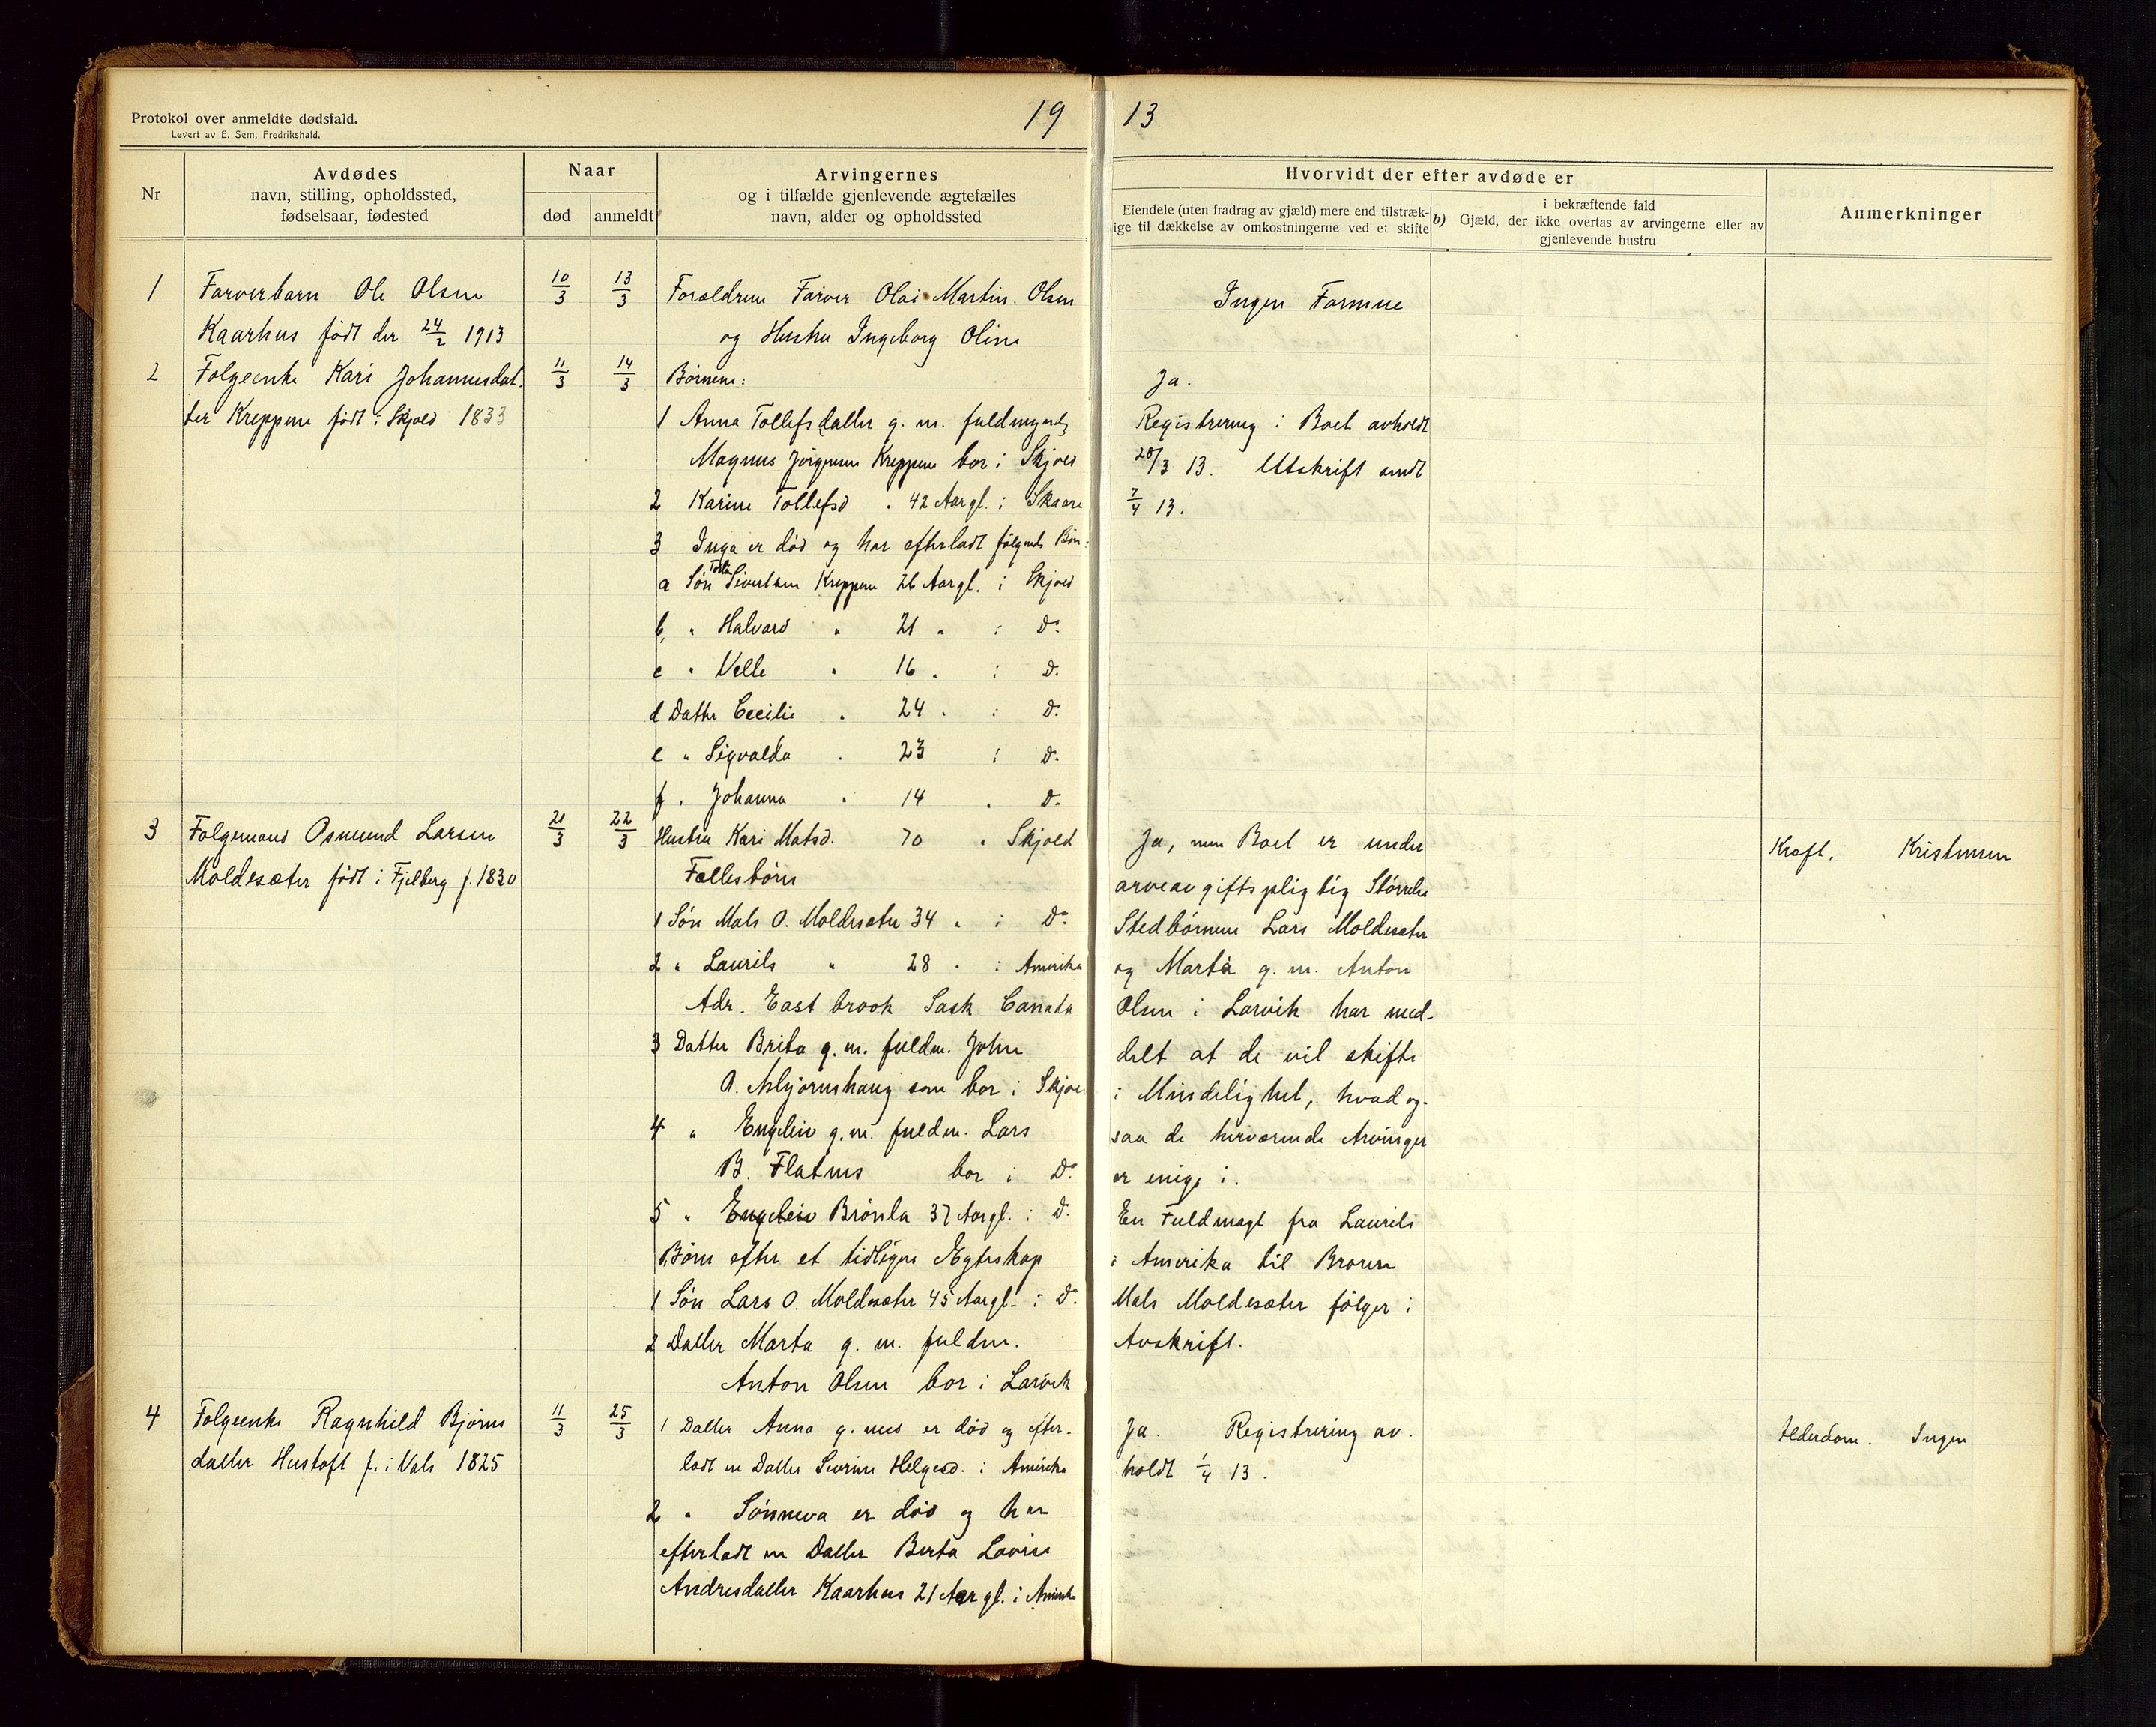 Protokol over anmeldte dødsfald.
Levert av E. Sem, Fredrikshald.
19 13
Nr
Avdødes
navn, stilling, opholdssted,
fødselsaar, fødested
Naar
død anmeldt
Arvingernes
og i tilfælde gjenlevende ægtefælles
navn, alder og opholdssted
Hvorvidt der efter avdøde er
Eiendele (uten fradrag av gjæld) mere end tilstræk-
ige til dækkelse av omkostningerne ved et skifte
b) i bekræftende fald
Gjæld, der ikke overtas av arvingerne eller av
gjenlevende hustru
Anmerkninger
1 Farverbarn Ole Olsen
Kaarhus født den 24/2 1913
10/3 13/3
Forældrene Farver Olai Martin Olsen
og Hustru Ingeborg Oline
Ingen Formue
2 Folgeenke Kari Johannesdat.
ter Kreppene født i Skjold 1833
11/3 14/3
Børnene:
1 Anna Tollefsdatter g. m. fuldmynd.
Magnus Jørgensen Kreppene bor i Skjold
2 Karine Tollefsd „ 42 Aar gl. i Skaare
3 Inga er død og har efterladt følgende Børn:
a Søn Sivertsen Kreppene 26 Aar gl. i Skjold
b, „ Halvard „ 21 „ i Do
c „ Velle „ 16 „ i Do
d Datter Cecilie „ 24 „ i Do
e „ Sigvalda „ 23 i Do
f „ Johanna „ 14 „ Do
Ja.
Registrering i Boet avholdt
28/3 13. Utskrift sendt
7/4 13.
3 Folgemand Osmund Larsen
Moldesæter født i Fjelberg f. 1830
21/3 22/3
Hustru Kari Matsd. 70 „ Skjold
Fællesbørn
1 Søn Mats O. Moldesæter 34 „ i Do
2 „ Laurits „ 28 „ i Amerika
Adr. East brook Sask Canada
3 Datter Brita g. m. fuldm. John
A. Asbjørnshaug som bor i Skjol
4 „ Engelev g. m. fuldm. Lars
B. Flatnes bor i Do
5 „ Engeleiv Brønla 37 Aar gl. i Do
Børn efter et tidligere Egteskap
1 Søn Lars O. Moldesæter 45 Aar gl. i Do
2 Datter Marta g. m. fuldm.
Anton Olsen bor i Larvik
Ja, men Boet er under
arveavgiftspligtig Størrelse
Stedbørnene Lars Moldesæter
og Marta g. m. Anton
Olsen i Larvik har med-
delt at de vil skifte
i Mindelighet, hvad og-
saa de herværende Arvinger
er enige i.
En Fuldmagt fra Laurits
i Amerika til Broren
Mats Moldesæter følger i
Avskrift.
Kræft. Kristensen
4 Folgeenke Ragnhild Bjørns
datter Hustoft f. i Vats 1825
11/3 25/3
1 Datter Anna g. med er død og efter-
ladt en Datter Severine Helgesd. i Amerika
2 „ Sønneva er død og har
efterladt en Datter Berta Lovise
Andresdatter Kaarhus 21 Aar gl. i Amerika
Ja. Registrering av-
holdt 1/4 13.
Alderdom. Ingen